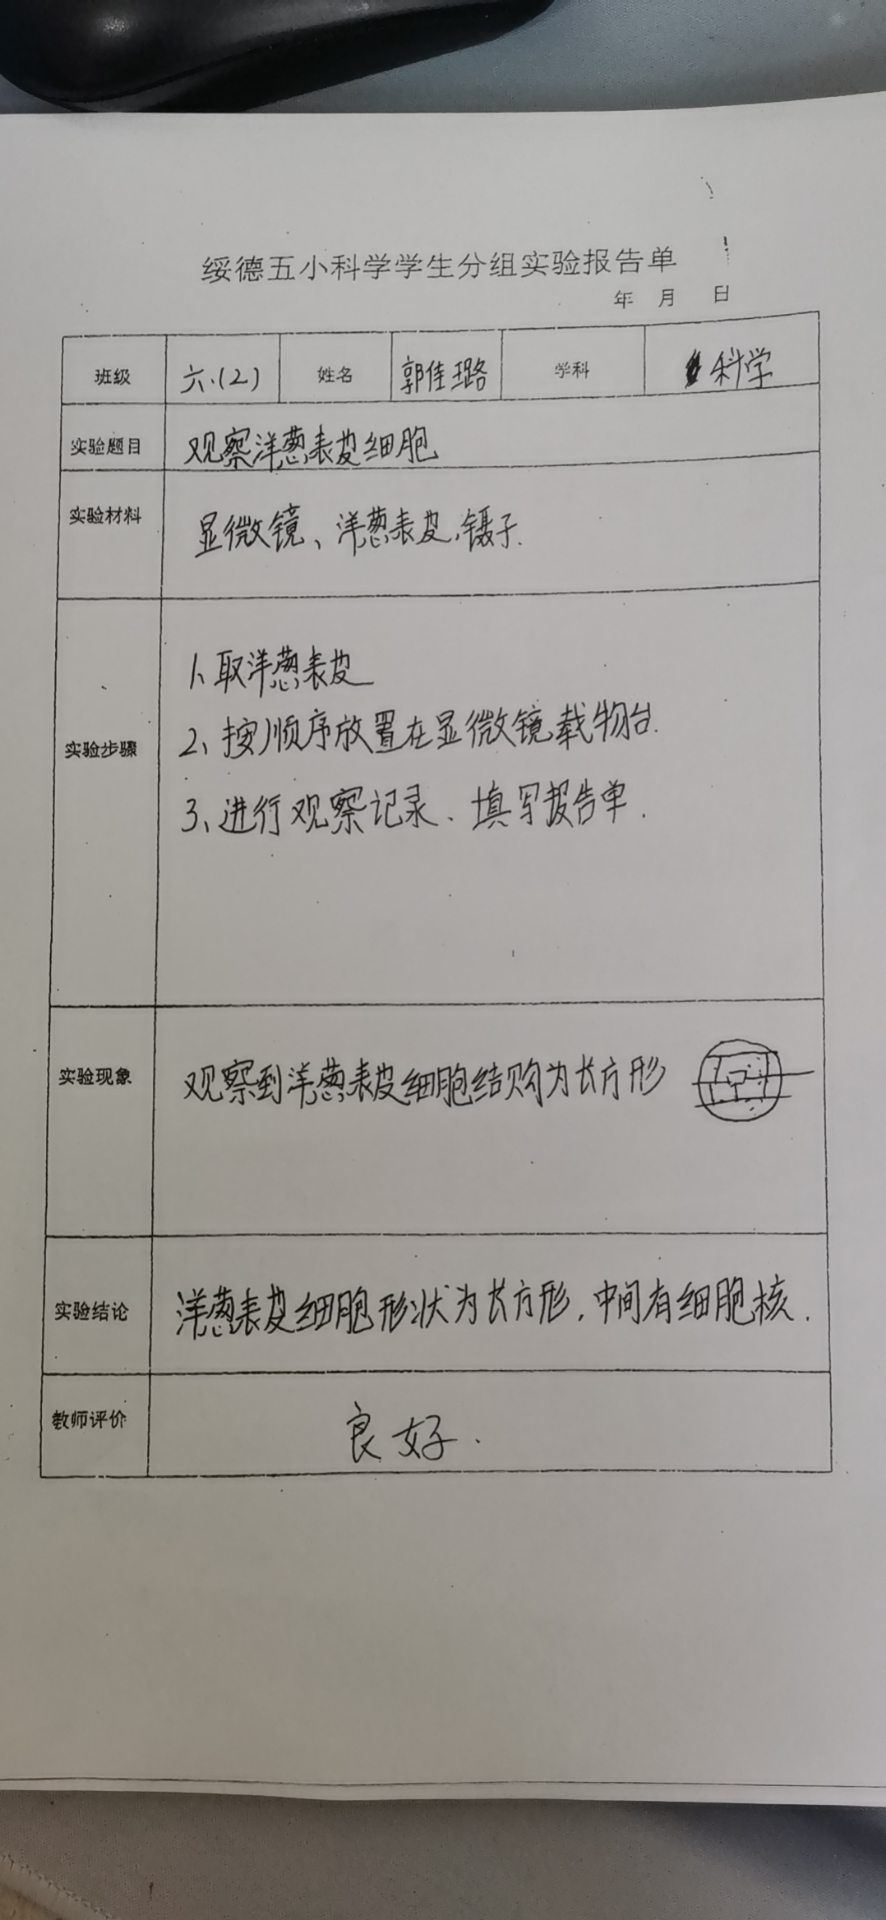 绥德五小科学学生分组实验报告单
年 月 日
班级 六.(2) 姓名 郭佳璐 学科 科学
实验题目 观察洋葱表皮细胞
实验材料 显微镜、洋葱表皮,镊子.
实验步骤
1、取洋葱表皮
2、按顺序放置在显微镜载物台.
3、进行观察记录、填写报告单.
实验现象 观察到洋葱表皮细胞结购为长方形
实验结论 洋葱表皮细胞形状为长方形,中间有细胞核.
教师评价 良好.